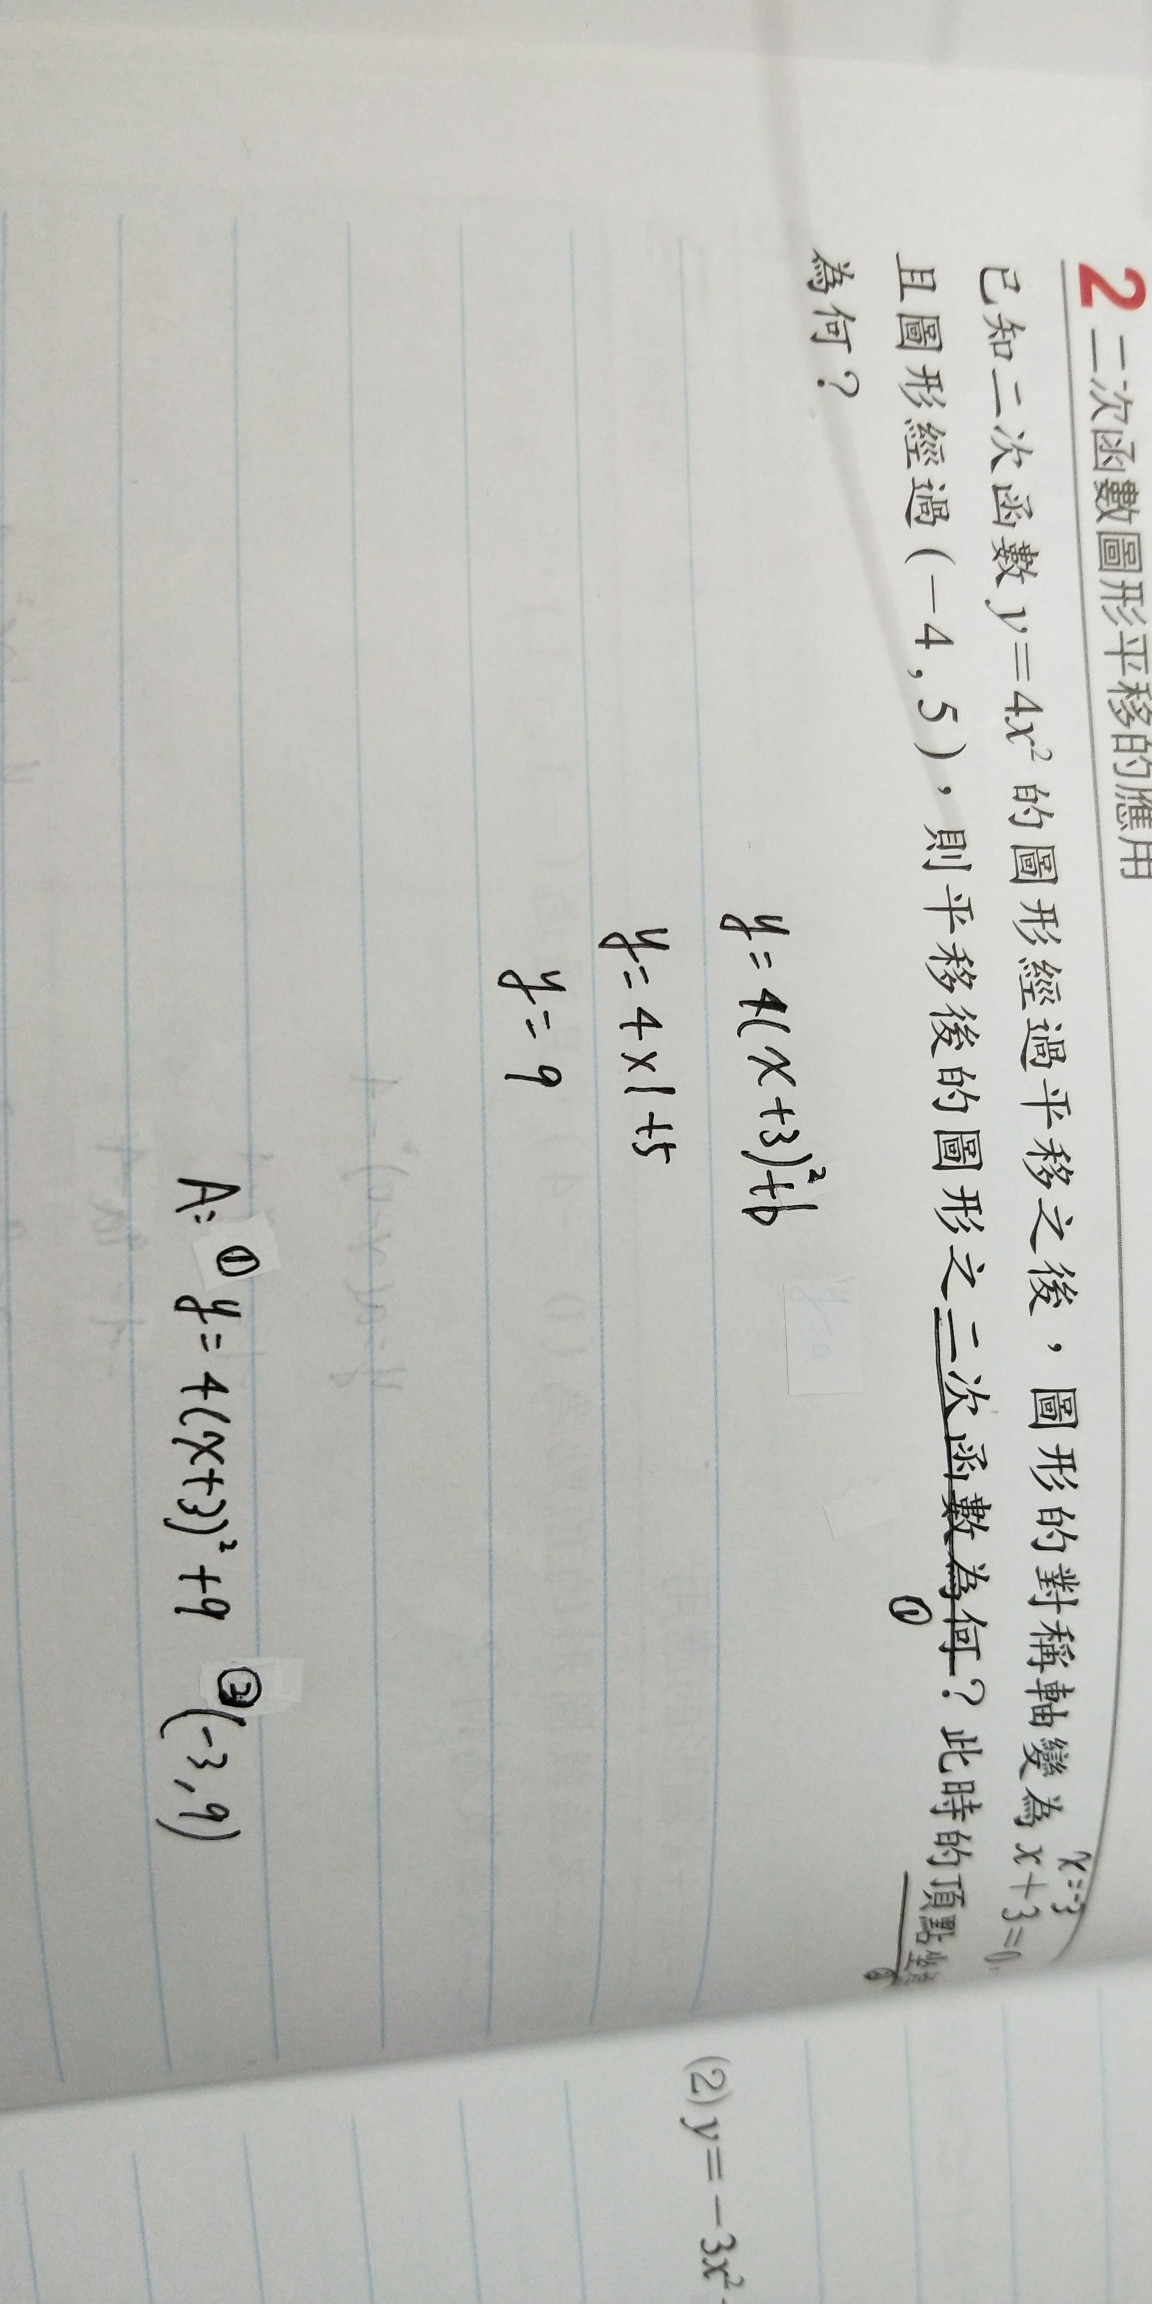 2 二次函數圖形平移的應用
已知二次函數 y=4x² 的圖形經過平移之後，圖形的對稱軸變為 x+3=0
x=-3
且圖形經過(-4,5)，則平移後的圖形之二次函數為何？此時的頂點坐
① ②
為何？
y=4(x+3)²+b
y=4×1+5
y=9
A: ① y=4(x+3)²+9 ②(-3,9)
(2) y=-3x²